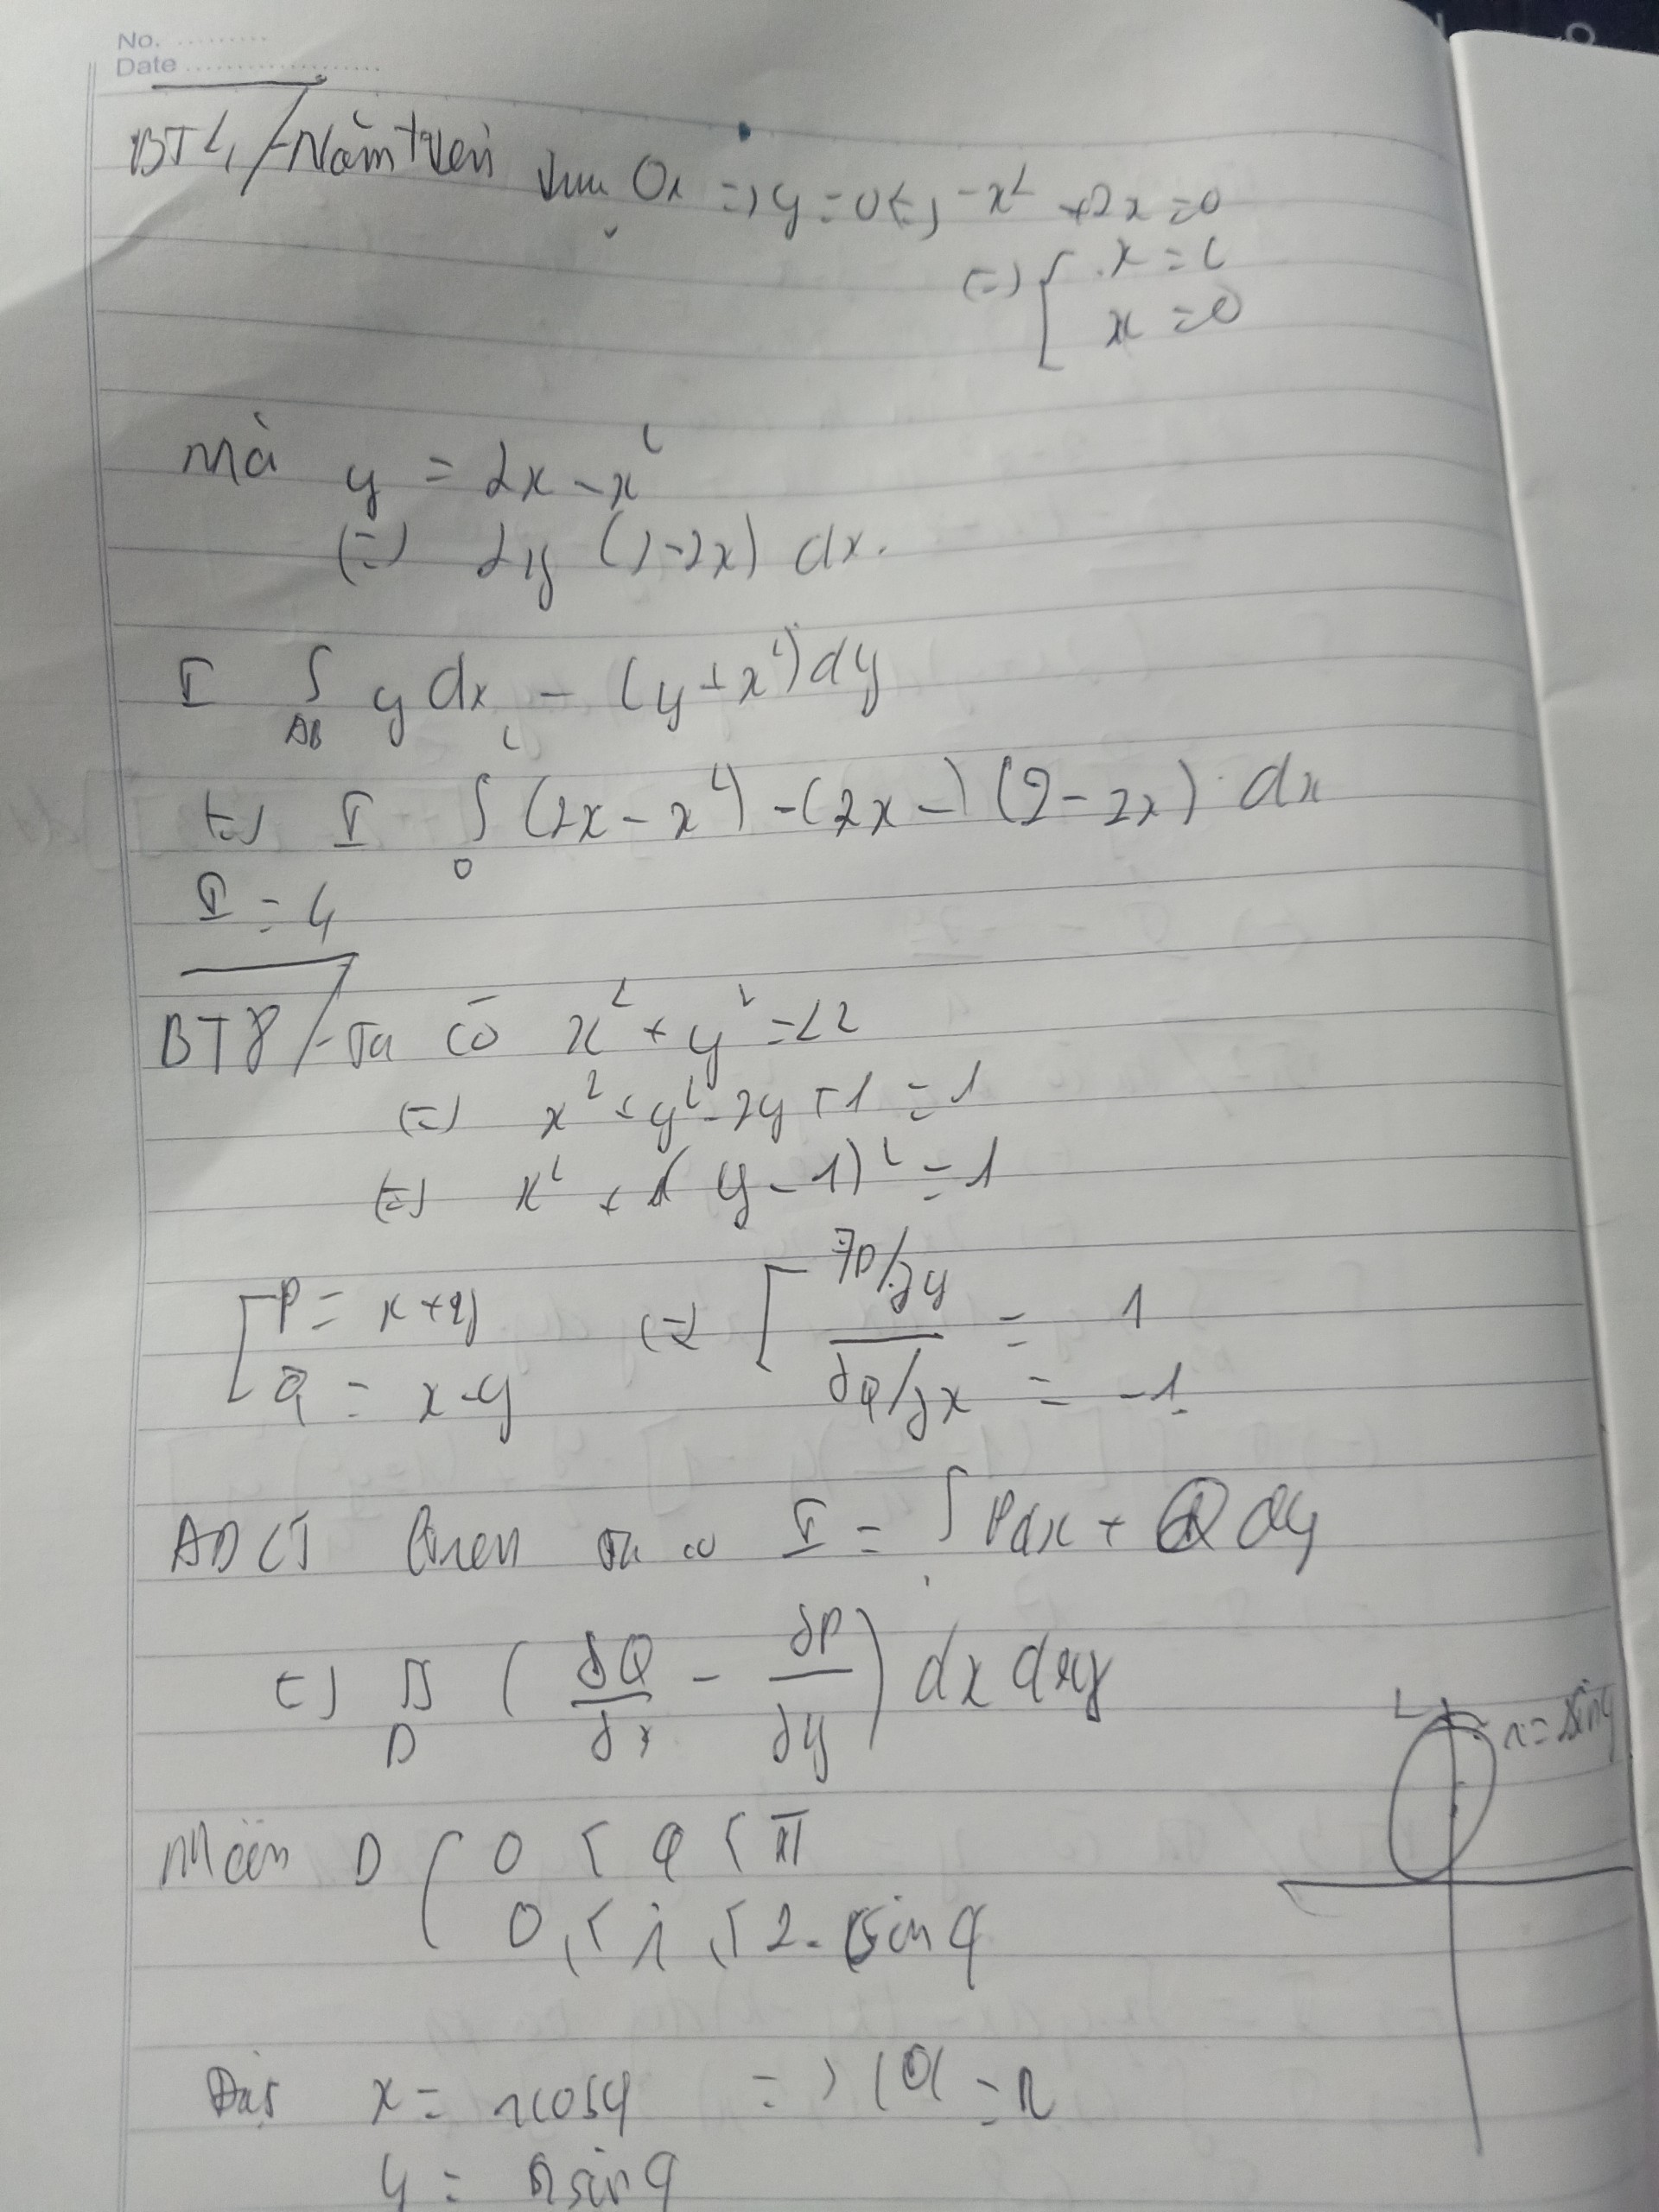 No. .........
Date ...................
/-Nằm trên trục Ox => y = 0 <=> -x² + 2x = 0
<=> [ x = 2
x = 0
Mà y = 2x - x²
<=> dy (2-2x) dx.
I ∫ y dx - (y + x²) dy
AB
2
<=> I ∫ (2x - x²) - (2x - ) (2 - 2x) dx
0
I = 4
BT8/-Ta có x² + y² = 22
<=> x² + y² - 2y + 1 = 1
<=> x² + (y - 1)² = 1
[ P = x + y <=> [ ∂P/∂y = 1
Q = x - y ∂Q/∂x = -1
ADCT Green Ta có I = ∫ Pdx + Q dy
<=> ∬ ( ∂Q/∂x - ∂P/∂y ) dx dy
D
Miền D { 0 ≤ φ ≤ π
0 ≤ r ≤ 2. sin φ
2 r = 2sinφ
Đặt x = rcosφ => |J| = r
y = rsinφ